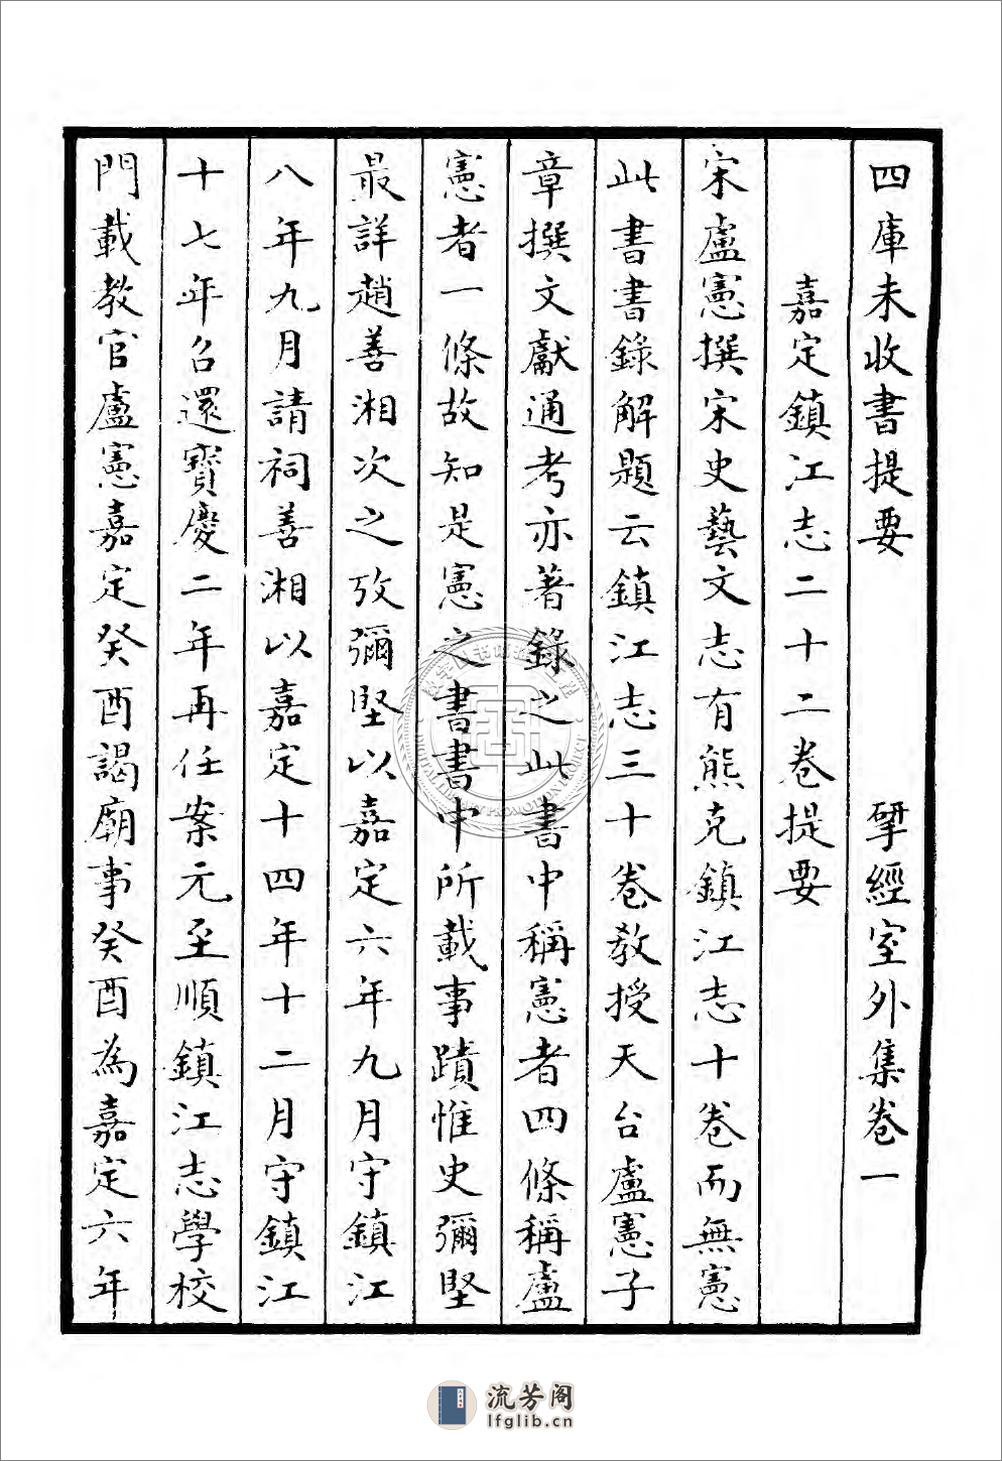 四庫未收書提要 揅經室外集卷一
嘉定鎮江志二十二卷提要
宋盧憲撰宋史藝文志有熊克鎮江志十卷而無憲
此書書錄解題云鎮江志三十卷教授天台盧憲子
章撰文獻通考亦著錄之此書中稱憲者四條稱盧
憲者一條故知是憲之書書中所載事蹟惟史彌堅
最詳趙善湘次之攷彌堅以嘉定六年九月守鎮江
八年九月請祠善湘以嘉定十四年十二月守鎮江
十七年召還寶慶二年再任案元至順鎮江志學校
門載教官盧憲嘉定癸酉謁廟事癸酉為嘉定六年
流芳阁
lfglib.cn